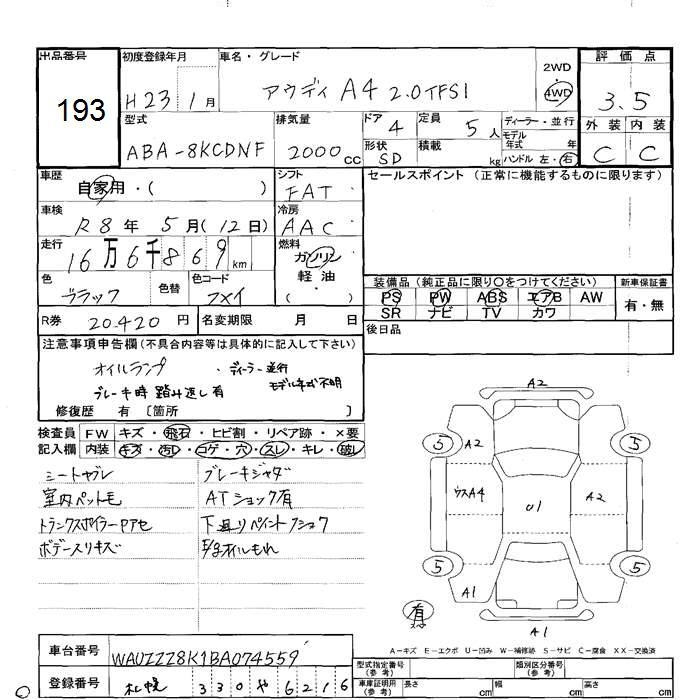 出品番号 初度登録年月 車名・グレード 評価点
193 H23 1月 アウディ A4 2.0TFSI 2WD 4WD 3.5
型式 排気量 ドア 4 定員 5人 ディーラー・並行 外装 内装
ABA-8KCDNF 2000cc 形状 SD 積載 kg モデル年式 年 ハンドル 左・右 C C
車歴 自家用・( ) シフト FAT セールスポイント (正常に機能するものに限ります)
車検 R8年 5月(12日) 冷房 AAC
走行 16万6千869km 燃料 ガソリン 軽油 ( )
色 ブラック 色替 色コード
装備品(純正品に限り○をつけてください) 新車保証書
PS PW ABS エアB AW 有・無
SR ナビ TV カワ
R券 20.420円 名変期限 月 日 後日品
注意事項申告欄(不具合内容等は具体的に記入して下さい)
オイルランプ ・ディーラー並行
ブレーキ時 踏み返し有 モデル年式不明
修復歴 有 〔箇所 〕
検査員 FW キズ・飛石・ヒビ割・リペア跡・×要
記入欄 内装 キズ・汚れ・コゲ・穴・スレ・キレ・破レ
シートヤブレ ブレーキジャダ
室内ペット毛 ATショック有
トランクスポイラーPアセ
ボデースリキズ オイルもれ
A2
5 A2 5
ウスA4 01 A2
5 5
A1
A1
A-キズ E-エクボ U-凹み W-補修跡 S-サビ C-腐食 XX-交換済
車台番号 WAUZZZ8K1BA074559
登録番号 札幌 330 や 6216
型式指定番号(参考) 類別区分番号(参考)
車庫証明用(参考) 長さ cm 幅 cm 高さ cm